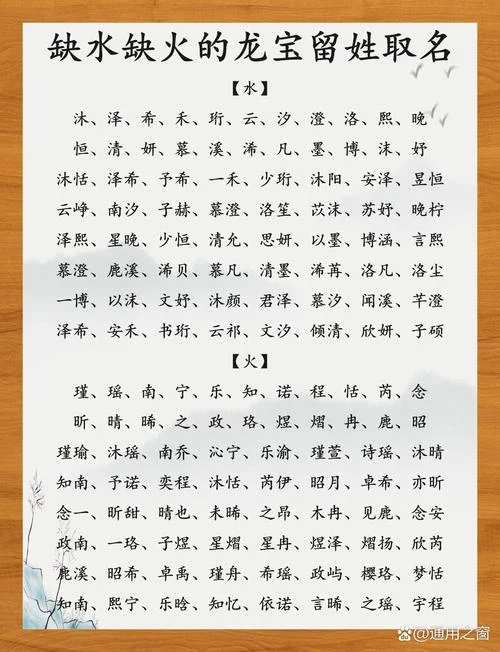 缺水缺火的龙宝留姓取名
【水】
沐、泽、希、禾、珩、云、汐、澄、洛、熙、晚
恒、清、妍、慕、溪、浠、凡、墨、博、沫、妤
沐恬、泽希、予希、一禾、少珩、沐阳、安泽、昱恒
云峥、南汐、子赫、慕澄、洛笙、苡沫、苏妤、晚柠
泽熙、星晚、少恒、清允、思妍、以墨、博涵、言熙
慕澄、鹿溪、浠贝、慕凡、清墨、浠苒、洛凡、洛尘
一博、以沫、文妤、沐颜、君泽、慕汐、闻溪、芊澄
泽希、安禾、书珩、云祁、文汐、倾清、欣妍、子硕
【火】
瑾、瑶、南、宁、乐、知、诺、程、恬、芮、念
昕、晴、晞、之、政、珞、煜、熠、冉、鹿、昭
瑾瑜、沐瑶、南乔、沁宁、乐渝、瑾萱、诗瑶、沐晴
知南、予诺、奕程、沐恬、芮伊、昭月、卓希、亦昕
念一、昕甜、晴也、未晞、之昂、木冉、见鹿、念安
政南、一珞、子煜、星熠、星冉、煜泽、熠扬、欣芮
鹿溪、昭希、卓禹、瑾舟、希瑶、政屿、樱珞、梦恬
知南、熙宁、乐晗、知忆、依诺、言晞、之瑶、宇程
百家号/通用之窗